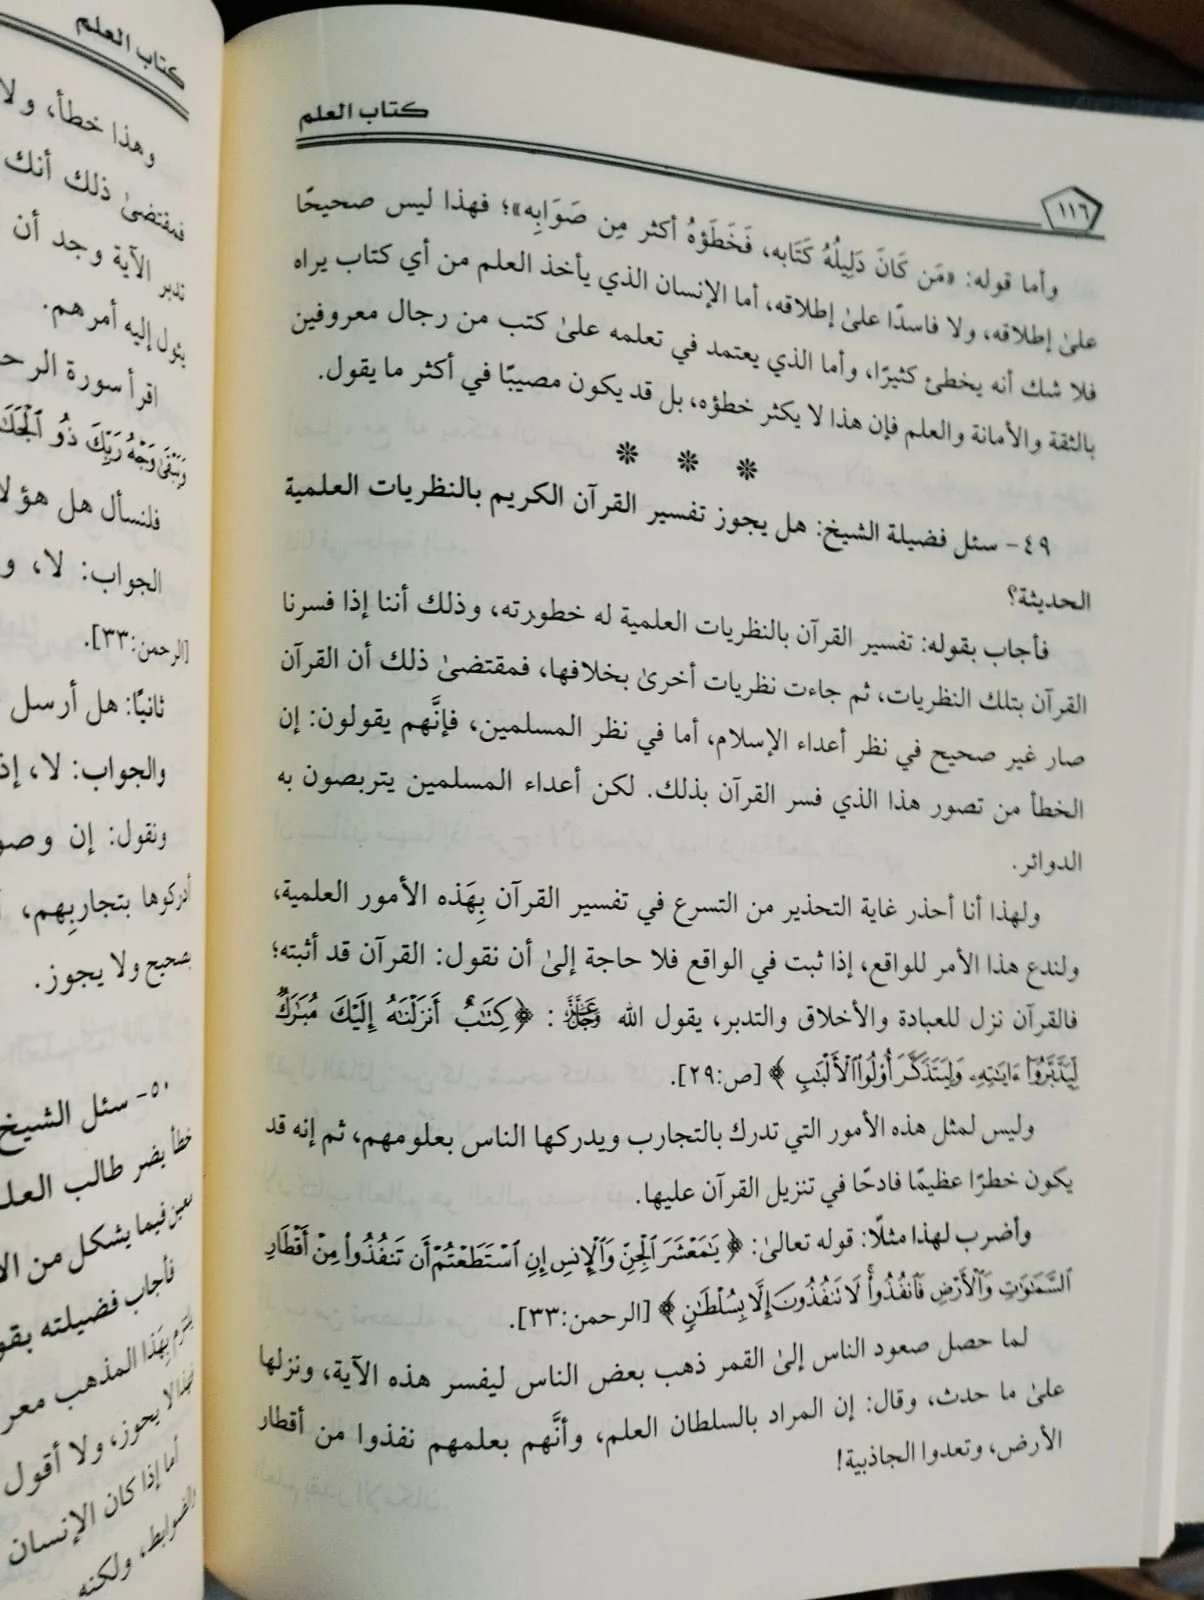 كتاب العلم
١١٦
وأما قوله: «مَن كَانَ دَلِيلُهُ كَتَابه، فَخَطَؤهُ أكثر مِن صَوَابِه»؛ فهذا ليس صحيحًا
علىٰ إطلاقه، ولا فاسدًا علىٰ إطلاقه، أما الإنسان الذي يأخذ العلم من أي كتاب يراه
فلا شك أنه يخطئ كثيرًا، وأما الذي يعتمد في تعلمه علىٰ كتب من رجال معروفين
بالثقة والأمانة والعلم فإن هذا لا يكثر خطؤه، بل قد يكون مصيبًا في أكثر ما يقول.
٤٩- سئل فضيلة الشيخ: هل يجوز تفسير القرآن الكريم بالنظريات العلمية
الحديثة؟
فأجاب بقوله: تفسير القرآن بالنظريات العلمية له خطورته، وذلك أننا إذا فسرنا
القرآن بتلك النظريات، ثم جاءت نظريات أخرىٰ بخلافها، فمقتضىٰ ذلك أن القرآن
صار غير صحيح في نظر أعداء الإسلام، أما في نظر المسلمين، فإنَّهم يقولون: إن
الخطأ من تصور هذا الذي فسر القرآن بذلك. لكن أعداء المسلمين يتربصون به
الدوائر.
ولهذا أنا أحذر غاية التحذير من التسرع في تفسير القرآن بِهَذه الأمور العلمية،
ولندع هذا الأمر للواقع، إذا ثبت في الواقع فلا حاجة إلىٰ أن نقول: القرآن قد أثبته؛
فالقرآن نزل للعبادة والأخلاق والتدبر، يقول الله عَزَّ وَجَلَّ: ﴿كِتَٰبٌ أَنزَلۡنَٰهُ إِلَيۡكَ مُبَٰرَكٞ
لِّيَدَّبَّرُوٓاْ ءَايَٰتِهِۦ وَلِيَتَذَكَّرَ أُوْلُواْ ٱلۡأَلۡبَٰبِ﴾ [ص:٢٩].
وليس لمثل هذه الأمور التي تدرك بالتجارب ويدركها الناس بعلومهم، ثم إنه قد
يكون خطرًا عظيمًا فادحًا في تنزيل القرآن عليها.
وأضرب لهذا مثلًا: قوله تعالىٰ: ﴿يَٰمَعۡشَرَ ٱلۡجِنِّ وَٱلۡإِنسِ إِنِ ٱسۡتَطَعۡتُمۡ أَن تَنفُذُواْ مِنۡ أَقۡطَارِ
ٱلسَّمَٰوَٰتِ وَٱلۡأَرۡضِ فَٱنفُذُواْۚ لَا تَنفُذُونَ إِلَّا بِسُلۡطَٰنٖ﴾ [الرحمن:٣٣].
لما حصل صعود الناس إلىٰ القمر ذهب بعض الناس ليفسر هذه الآية، ونزلها
علىٰ ما حدث، وقال: إن المراد بالسلطان العلم، وأنَّهم بعلمهم نفذوا من أقطار
الأرض، وتعدوا الجاذبية!
كتاب العلم
وهذا خطأ، ولا
فمقتضىٰ ذلك أنك
تدبر الآية وجد أن
يئول إليه أمرهم.
اقرأ سورة الرحـ
وَيَبۡقَىٰ وَجۡهُ رَبِّكَ ذُو ٱلۡجَلَـ
فلنسأل هل هؤلا
الجواب: لا، و
[الرحمن:٣٣].
ثانيًا: هل أرسل
والجواب: لا، إذ
ونقول: إن وصو
أدركوها بتجاربِهم،
بصحيح ولا يجوز.
٥٠- سئل الشيخ
خطأ يضر طالب العلـ
فيما يشكل من الأ
فأجاب فضيلته بقو
يلتزم بِهَذا المذهب معر
فهذا لا يجوز، ولا أقول
أما إذا كان الإنسان
والضوابط، ولكنه